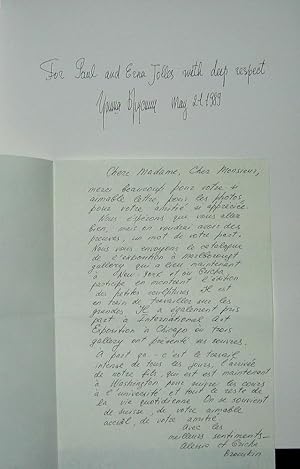 For Paul and Erna Jolles with deep respect
Гриша Брускин May 21. 1989
Chere Madame, Cher Monsieur,
merci beaucoup pour votre
aimable lettre, pour les photos
pour votre amitié
Nous espérons que vous allez
bien, mais on voudrai avoir des
preuves, un mot de votre part.
Nous vous envoyons le catalogue
de l'exposition à Marlborough
gallery qui a lieu maintenant
à New York et où Grisha
participe en montrant l'édition
des petites sculptures. Il est
en train de travailler sur les
grandes. Il a également pris
part à International Art
Exposition à Chicago où trois
gallery ont présenté ses oeuvres.
A part ça - c'est le travail
intense de tous les jours, l'arrivée
de notre fils, qui est maintenant
à Washington pour suivre les cours
à l'université et tout le reste de
la vie quotidienne. On se souvient
de Suisse, de votre aimable
accueil, de votre amitié.
Avec les
meilleurs sentiments -
Alesia et Grisha
Brouskin